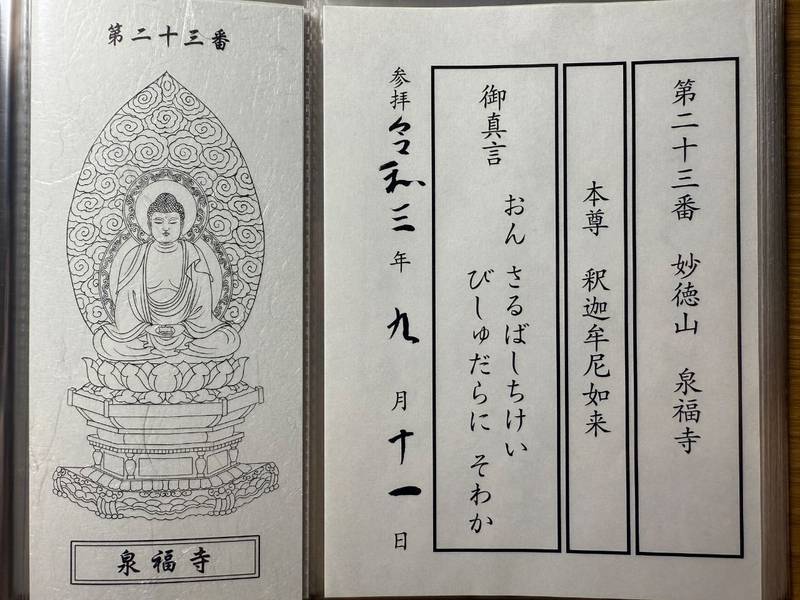 第二十三番
泉福寺
第二十三番　妙徳山　泉福寺
本尊　釈迦牟尼如来
御真言
おん　さるばしちけい
びしゅだらに　そわか
参拝　令和三年　九月十一日